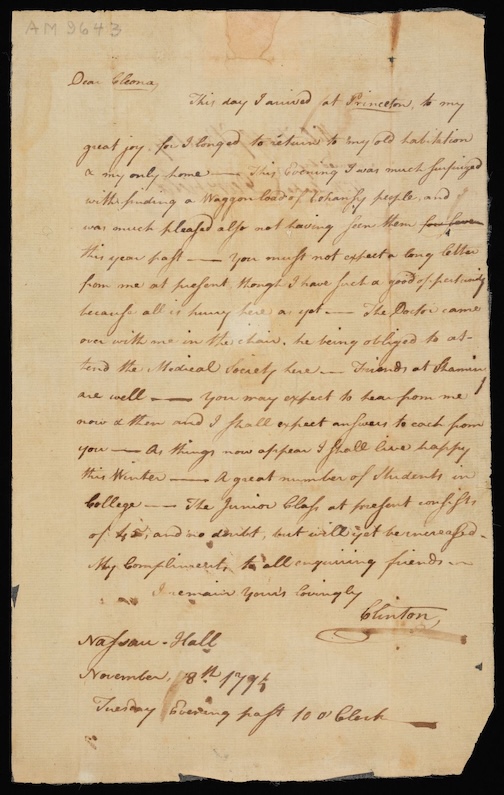 AM 9643
Dear Cleona,
This day I arived at Princeton, to my
great joy, for I longed to return to my old habitation
& my only home —— This Evening I was much surprized
with finding a Waggon load of Cohansy people, and
was much pleased also not having seen them
this year past —— You must not expect a long letter
from me at present though I have such a good oppertunity
because all is hurry here as yet —— The Doctor came
over with me in the chair, he being obliged to at-
tend the Medical Society here —— Friends at Shamin
are well —— You may expect to hear from me
now & then and I shall expect answers to each from
you —— As things now appear I shall live happy
this Winter —— A great number of Students in
College —— The Junior Class at present consists
of and no doubt, but will yet be increased —
My Compliments to all enquiring friends —
I remain Yours lovingly
Clinton,
Nassau-Hall
November, 8th
Tuesday Evening past 10 o'Clock